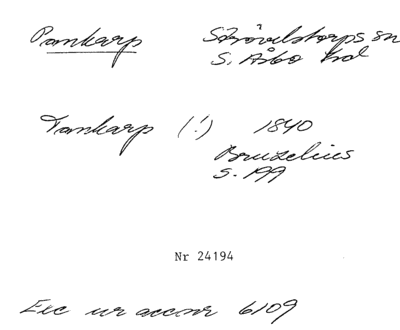 Pankarp Strövelstorps sn
S. Åsbo hd
Tankarp (!) 1840
Bruzelius
S. 199
Nr 24194
Exc ur accnr 6109